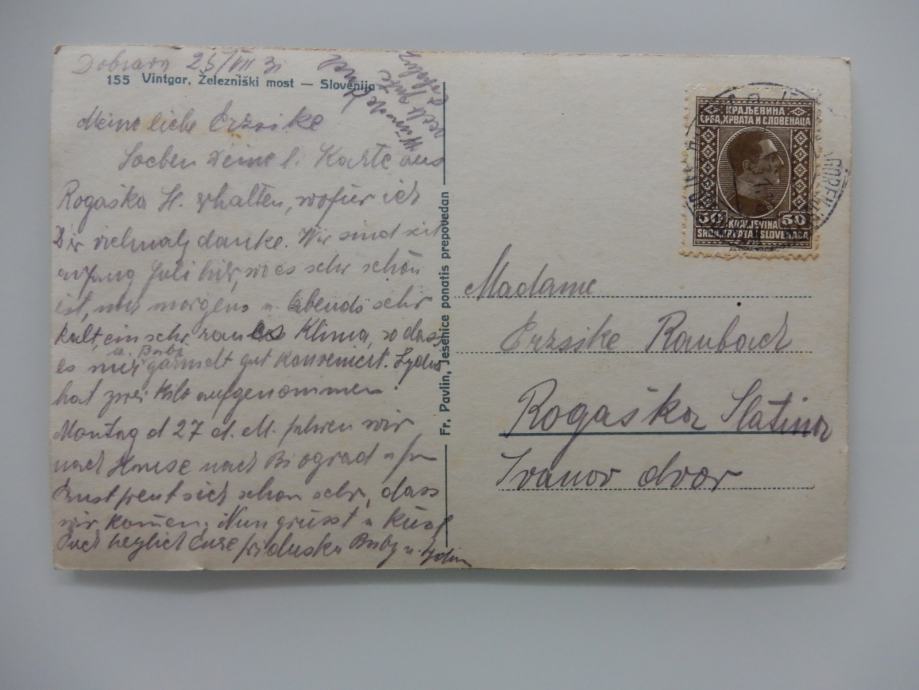 Dobrava 25/VII 31
155 Vintgar, Železniški most — Slovenija
Meine liebe Erzsike
Soeben Deine l. Karte aus
Rogaška Sl. erhalten, wofür ich
Dir vielmals danke. Wir sind seit
anfang Juli hier, wo es sehr schön
ist, nur morgens u. Abends sehr
kalt, ein sehr rauhes Klima, so dass
es mir u. Buby garnicht gut konveniert. Lydia
hat zwei Kilo aufgenommen
Montag d 27 d. M. fahren wir
nach Hause nach Biograd
freut sich schon sehr, dass
wir komen. Nun grüsst u. küsst
Euch herzlich Eure Buby u. Lydia
Fr. Pavlin, Jesenice ponatis prepovedan
КРАЉЕВИНА
СРБА, ХРВАТА И СЛОВЕНАЦА
50 KRALJEVINA 50
SRBA, HRVATA I SLOVENACA
Madame
Erzsike Raubach
Rogaška Slatina
Ivanov dvor